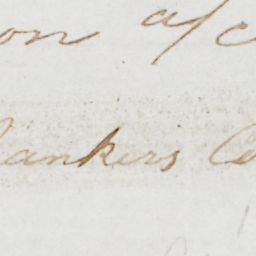 on a/c
Bankers Co